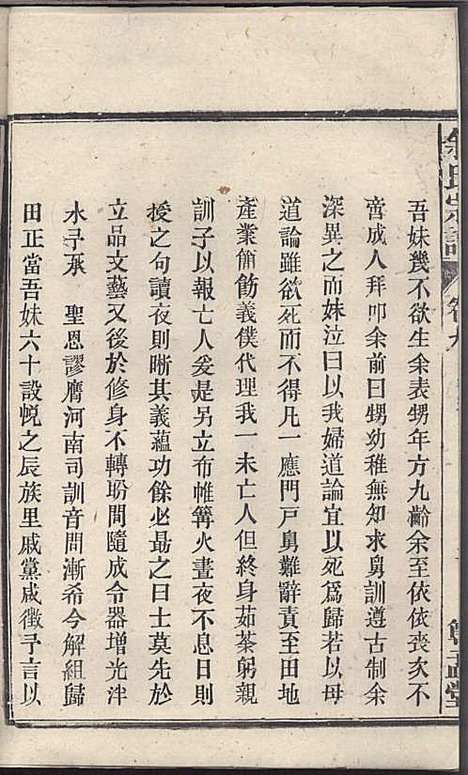 余氏宗譜 卷九
吾妹幾不欲生余表甥年方九齡余至依依喪次不
啻成人拜叩余前曰甥幼稚無知求舅訓遵古制余
深異之而妹泣曰以我婦道論宜以死爲歸若以母
道論雖欲死而不得凡一應門戶舅難辭責至田地
產業飭義僕代理我一未亡人但終身茹荼躬親
訓子以報亡人爰是另立布帷篝火晝夜不息日則
授之句讀夜則晰其義蘊功餘必勗之曰士莫先於
立品文藝又後於修身不轉盼間隨成令器增光泮
水予承 聖恩謬膺河南司訓音問漸希今解組歸
田正當吾妹六十設帨之辰族里戚黨咸徵予言以